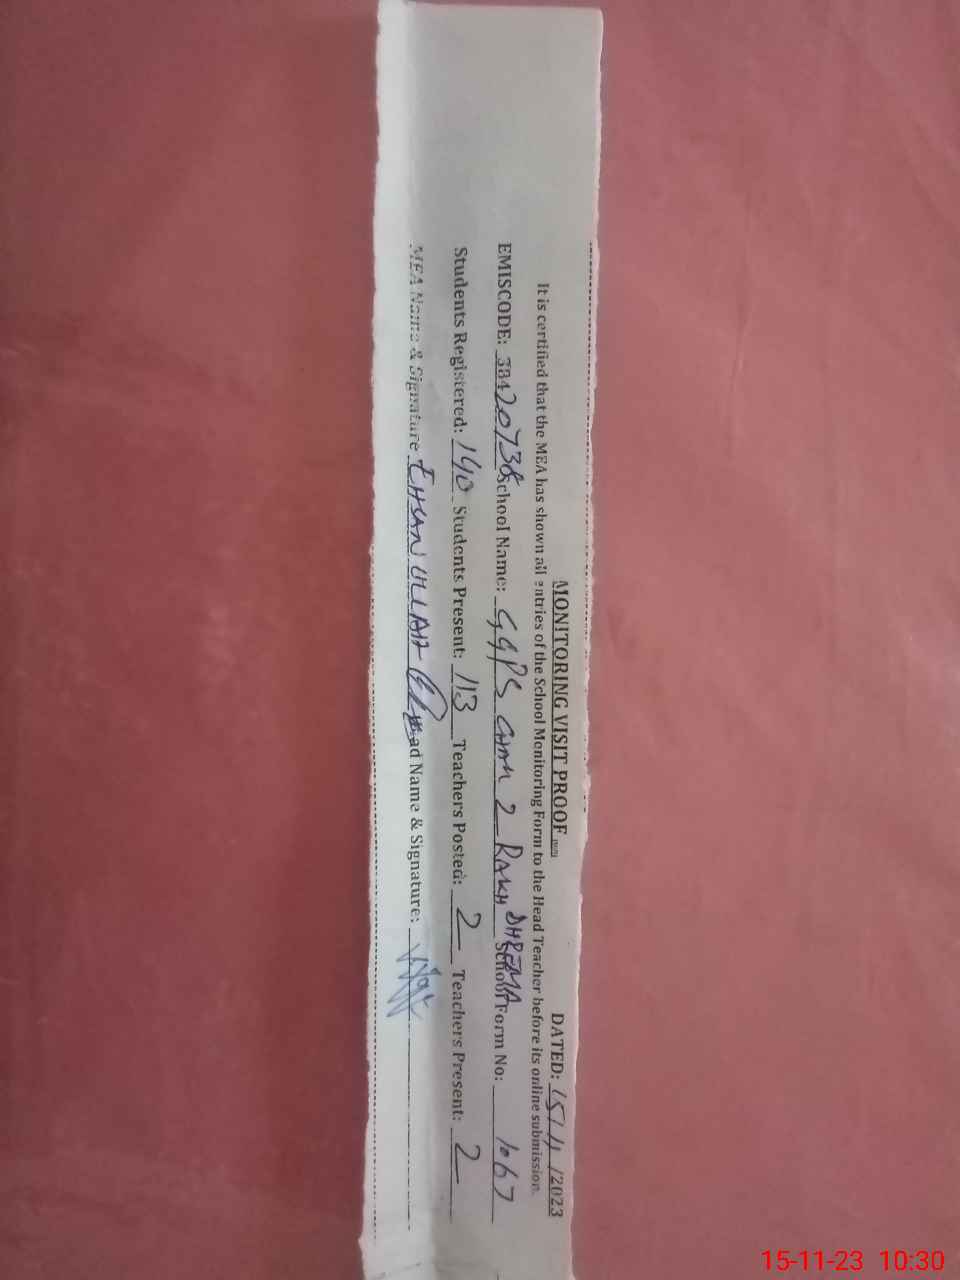 MONITORING VISIT PROOF DATED: 15/11/2023
It is certified that the MEA has shown all entries of the School Monitoring Form to the Head Teacher before its online submission.
EMISCODE: 38420738 School Name: GGPS CHAK 2 RAKH DHREMA School Form No: 1067
Students Registered: 140 Students Present: 113 Teachers Posted: 2 Teachers Present: 2
MEA Name & Signature EHSAN ULLAH Head Name & Signature:
15-11-23 10:30